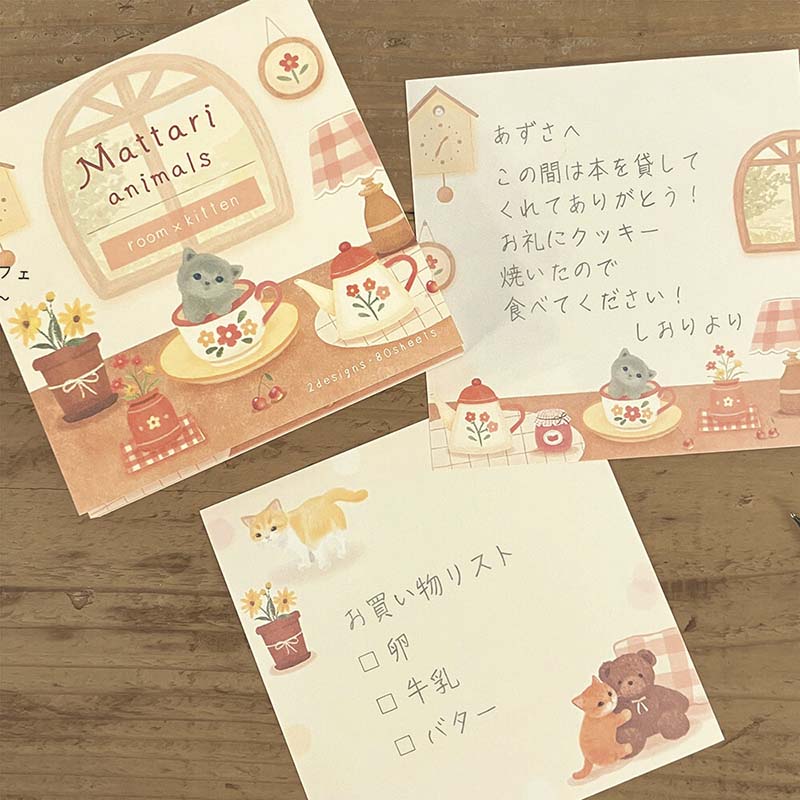 Mattari
animals
room×kitten
2designs・80sheets
フェ
〜
あずさへ
この間は本を貸して
くれてありがとう!
お礼にクッキー
焼いたので
食べてください!
しおりより
お買い物リスト
□ 卵
□ 牛乳
□ バター